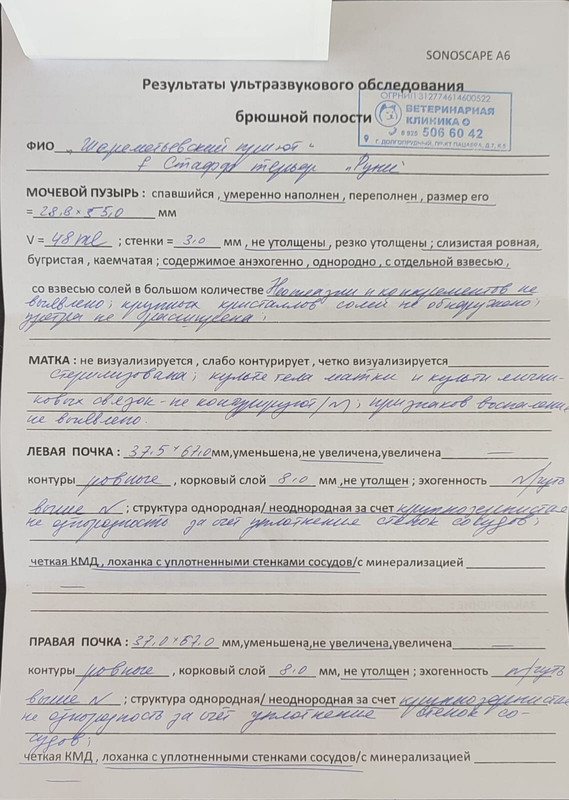 SONOSCAPE A6
Результаты ультразвукового обследования
брюшной полости
ОГРНИП 312774614600522
ВЕТЕРИНАРНАЯ
КЛИНИКА
8 925 506 60 42
Г. ДОЛГОПРУДНЫЙ,
ФИО „Шереметьевский приют"
f Стафф терьер "Руни"
МОЧЕВОЙ ПУЗЫРЬ : спавшийся , умеренно наполнен , переполнен , размер его
= 28,8 × 55,0 мм
V = 48 ml ; стенки = 3,0 мм , не утолщены , резко утолщены ; слизистая ровная,
бугристая , каемчатая ; содержимое анэхогенно , однородно , с отдельной взвесью ,
со взвесью солей в большом количестве Неоплазии и конкрементов не
выявлено; крупных кристаллов солей не обнаружено;
уретра не расширена;
МАТКА : не визуализируется , слабо контурирует , четко визуализируется
стерилизована; культя тела матки и культи яични-
ковых связок - не контурируют /N/; признаков воспаления
не выявлено.
ЛЕВАЯ ПОЧКА : 37,5 × 67,0 мм,уменьшена,не увеличена,увеличена
контуры ровные , корковый слой 8,0 мм ,не утолщен ; эхогенность N/чуть
выше N ; структура однородная/ неоднородная за счет крупнозернистая
неоднородность за счёт уплотнение стенок сосудов;
четкая КМД , лоханка с уплотненными стенками сосудов/с минерализацией
ПРАВАЯ ПОЧКА : 37,0 × 67,0 мм,уменьшена,не увеличена,увеличена
контуры ровные , корковый слой 8,0 мм, не утолщен ; эхогенность N/чуть
выше N ; структура однородная/ неоднородная за счет крупнозернистая
неоднородность за счёт уплотнение стенок со-
судов;
четкая КМД , лоханка с уплотненными стенками сосудов/с минерализацией